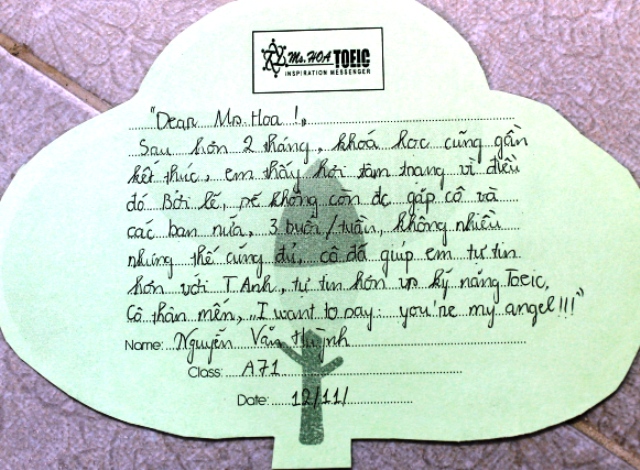 Ms. HOA TOEIC
INSPIRATION MESSENGER
"Dear Ms. Hoa !,
Sau hơn 2 tháng, khoá học cũng gần
kết thúc, em thấy hơi tâm trạng vì điều
đó. Bởi lẽ, sẽ không còn đc gặp cô và
các bạn nữa, 3 buổi/tuần, không nhiều
nhưng thế cũng đủ, cô đã giúp em tự tin
hơn với T.Anh, tự tin hơn vs kỹ năng Toeic,
Cô thân mến, "I want to say: you're my angel!!!"
Name: Nguyễn Văn Huỳnh
Class: A71
Date: 12/11/